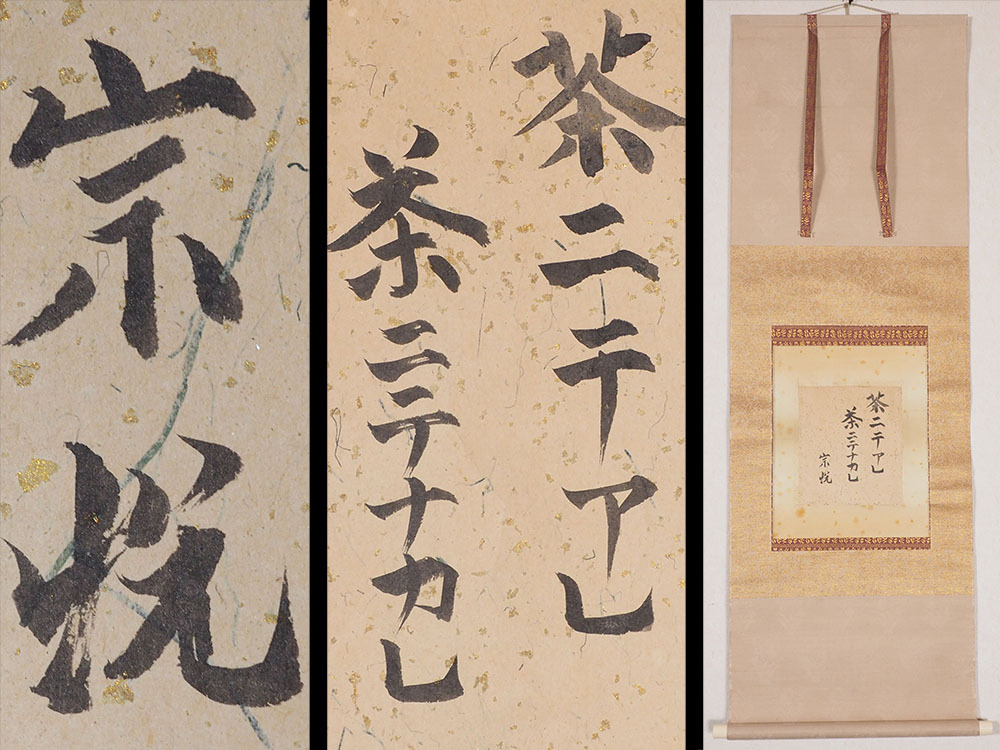 宗悦
茶ニテアレ
茶ニテナカレ
茶ニテアレ
茶ニテナカレ
宗悦